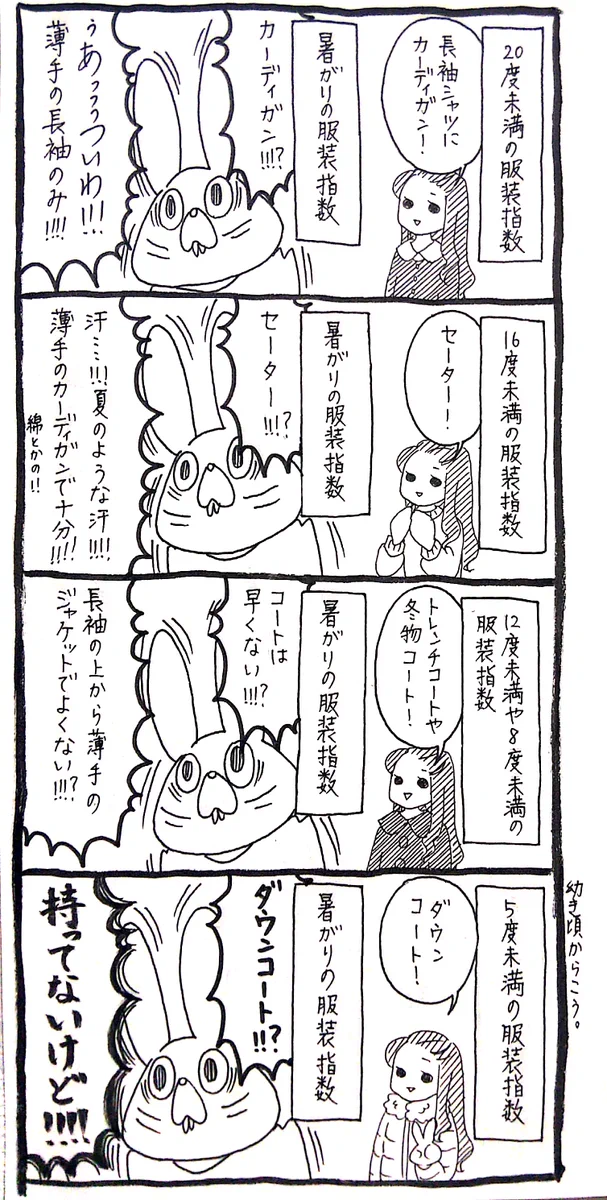 20度未満の服装指数
長袖シャツに
カーディガン!
暑がりの服装指数
カーディガン!!!?
うあっっっついわ!!!
薄手の長袖のみ!!!!
16度未満の服装指数
セーター!
暑がりの服装指数
セーター!!!?
汗…!!!夏のような汗!!!!
薄手のカーディガンで十分!!!!
綿とかの!!
12度未満や8度未満の
服装指数
トレンチコートや
冬物コート!
暑がりの服装指数
コートは
早くない!!!?
長袖の上から薄手の
ジャケットでよくない!!!?
5度未満の服装指数
ダウン
コート!
暑がりの服装指数
ダウンコート!!!?
持ってないけど!!!!
幼き頃からこう。